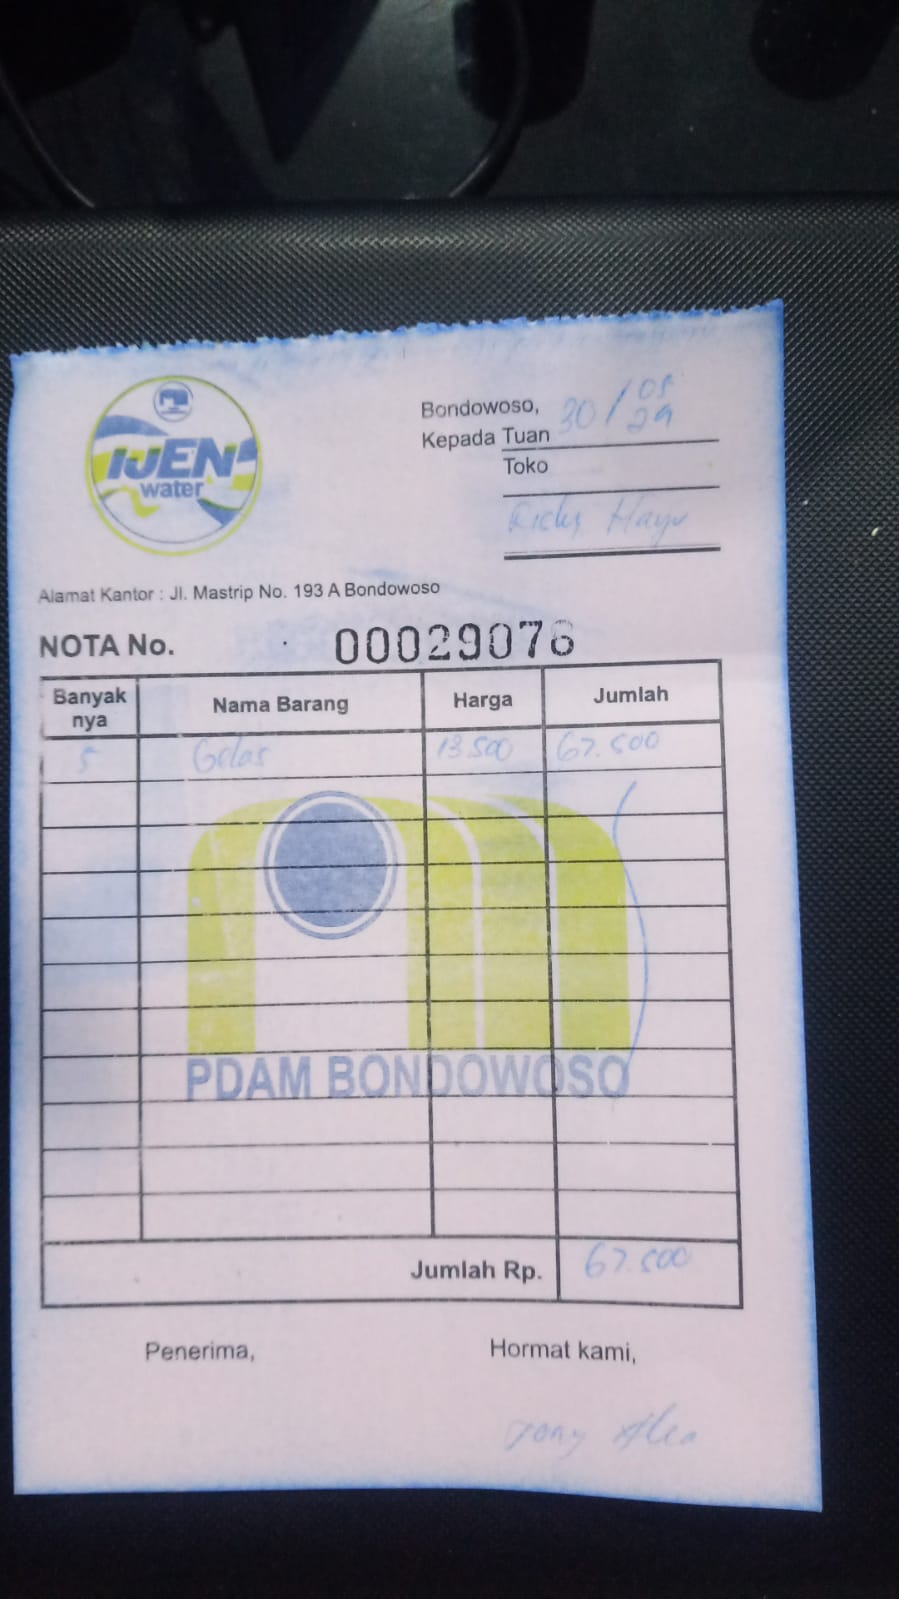 IJEN
water
Bondowoso, 30/05
Kepada Tuan
Toko
Alamat Kantor : Jl. Mastrip No. 193 A Bondowoso
NOTA No. 00029076
Banyak nya Nama Barang Harga Jumlah
5 Gelas 13.500 67.500
PDAM BONDOWOSO
Jumlah Rp. 67.500
Penerima, Hormat kami,
Tony